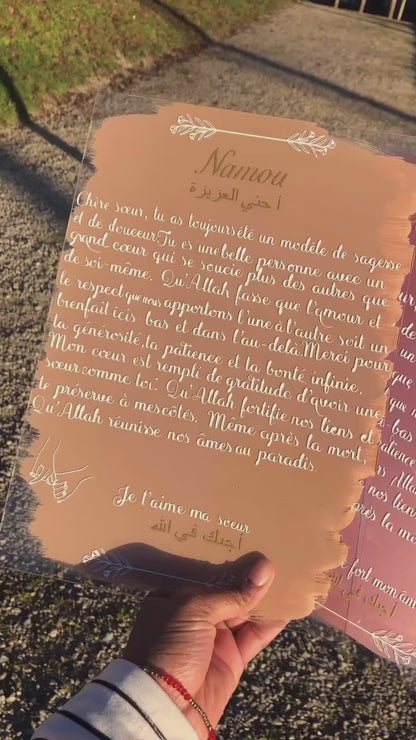 Namou
أحني العزيزة
Chère sœur, tu as toujours été un modèle de sagesse
et de douceur.Tu es une belle personne avec un
grand cœur qui se soucie plus des autres que
de soi-même. Qu'Allah fasse que l'amour et
le respect que nous apportons l'une à l'autre soit un
bienfait icis bas et dans l'au-delà.Merci pour
la générosité,ta patience et la bonté infinie.
Mon cœur est rempli de gratitude d'avoir une
sœur comme toi. Qu'Allah fortifie nos liens et
te préserve à mes côtés. Même après la mort,
Qu'Allah réunisse nos âmes au paradis
Je t'aime ma sœur
أحبك في الله
fort mon âm
أحبك في الله